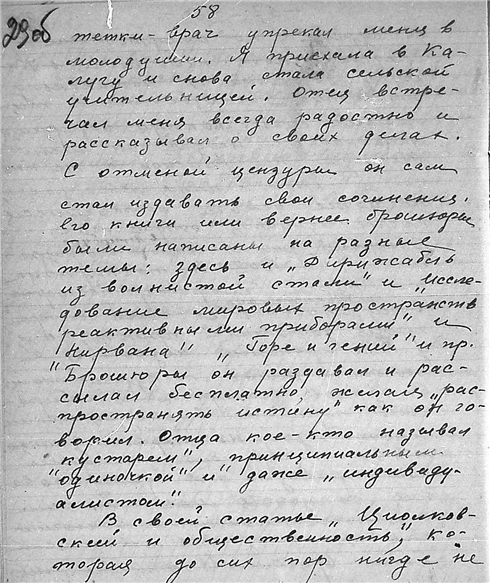 58
29об
тетки-врач упрекал меня в
молодушии. Я приехала в Ка-
лугу и снова стала сельской
учительницей. Отец встре-
чал меня всегда радостно и
рассказывал о своих делах.
С отменой цензуры он сам
стал издавать свои сочинения.
Его книги или вернее брошюры
были написаны на разные
темы: здесь и „Дирижабль
из волнистой стали" и „Иссле-
дование мировых пространств
реактивными приборами" и
Нирвана" „Горе и гений" и пр.
"Брошюры он раздавал и рас-
сылал бесплатно, желая „рас-
пространять истину" как он го-
ворил. Отца кое-кто называл
"кустарем", принципиальным
"одиночкой" и даже „индивиду-
алистом".
В своей статье „Циолков-
ский и общественность", ко-
торая до сих пор нигде не